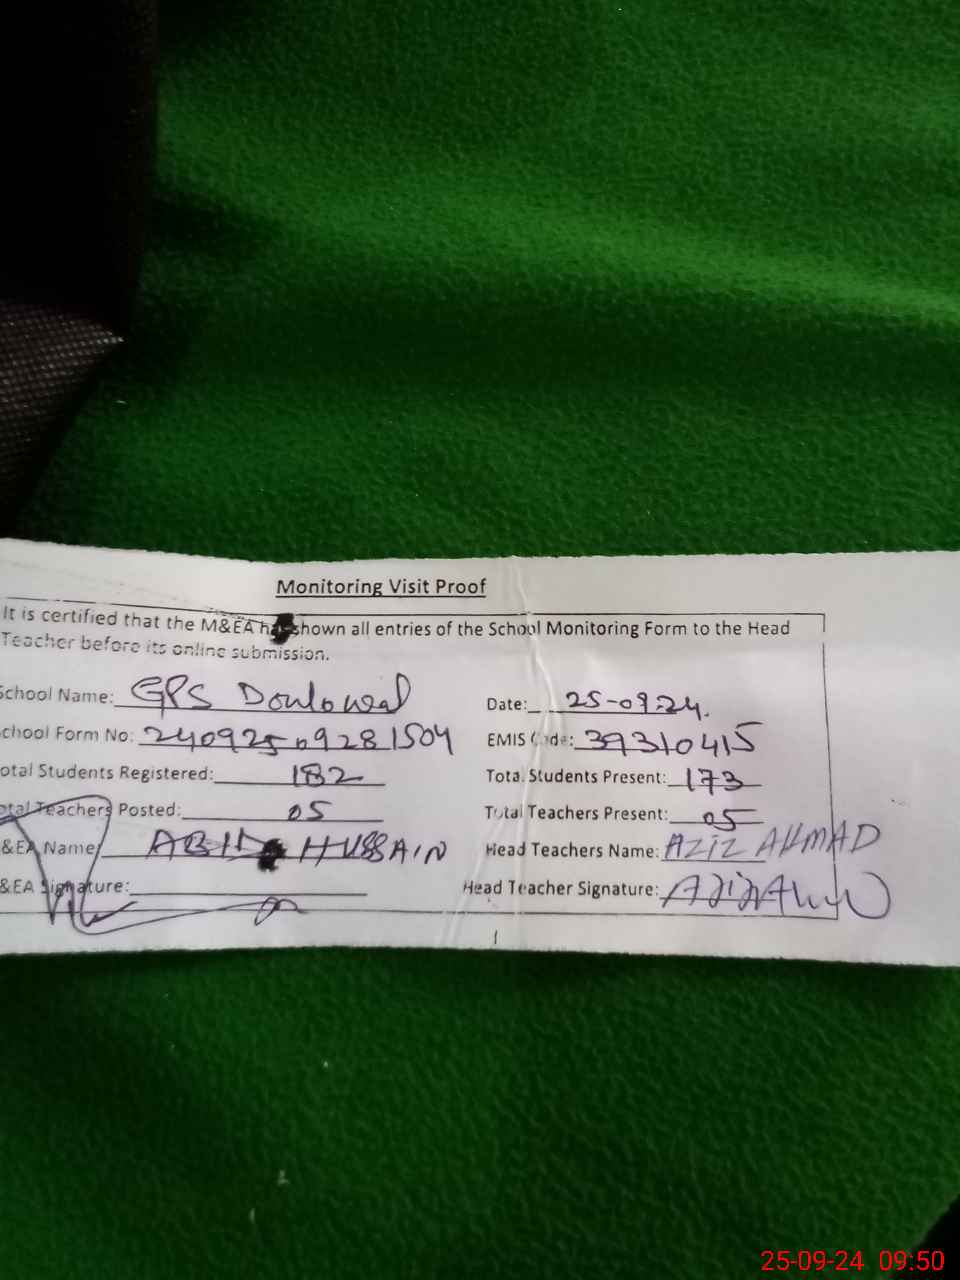 Monitoring Visit Proof
It is certified that the M&EA has shown all entries of the School Monitoring Form to the Head
Teacher before its online submission.
School Name: GPS Doulowal Date: 25-09-24.
School Form No: 240925 09281504 EMIS Code: 39310415
Total Students Registered: 182 Total Students Present: 173
Total Teachers Posted: 05 Total Teachers Present: 05
M&EA Name: ABID HUSSAIN Head Teachers Name: AZIZ AHMAD
M&EA Signature: Head Teacher Signature:
1
25-09-24 09:50